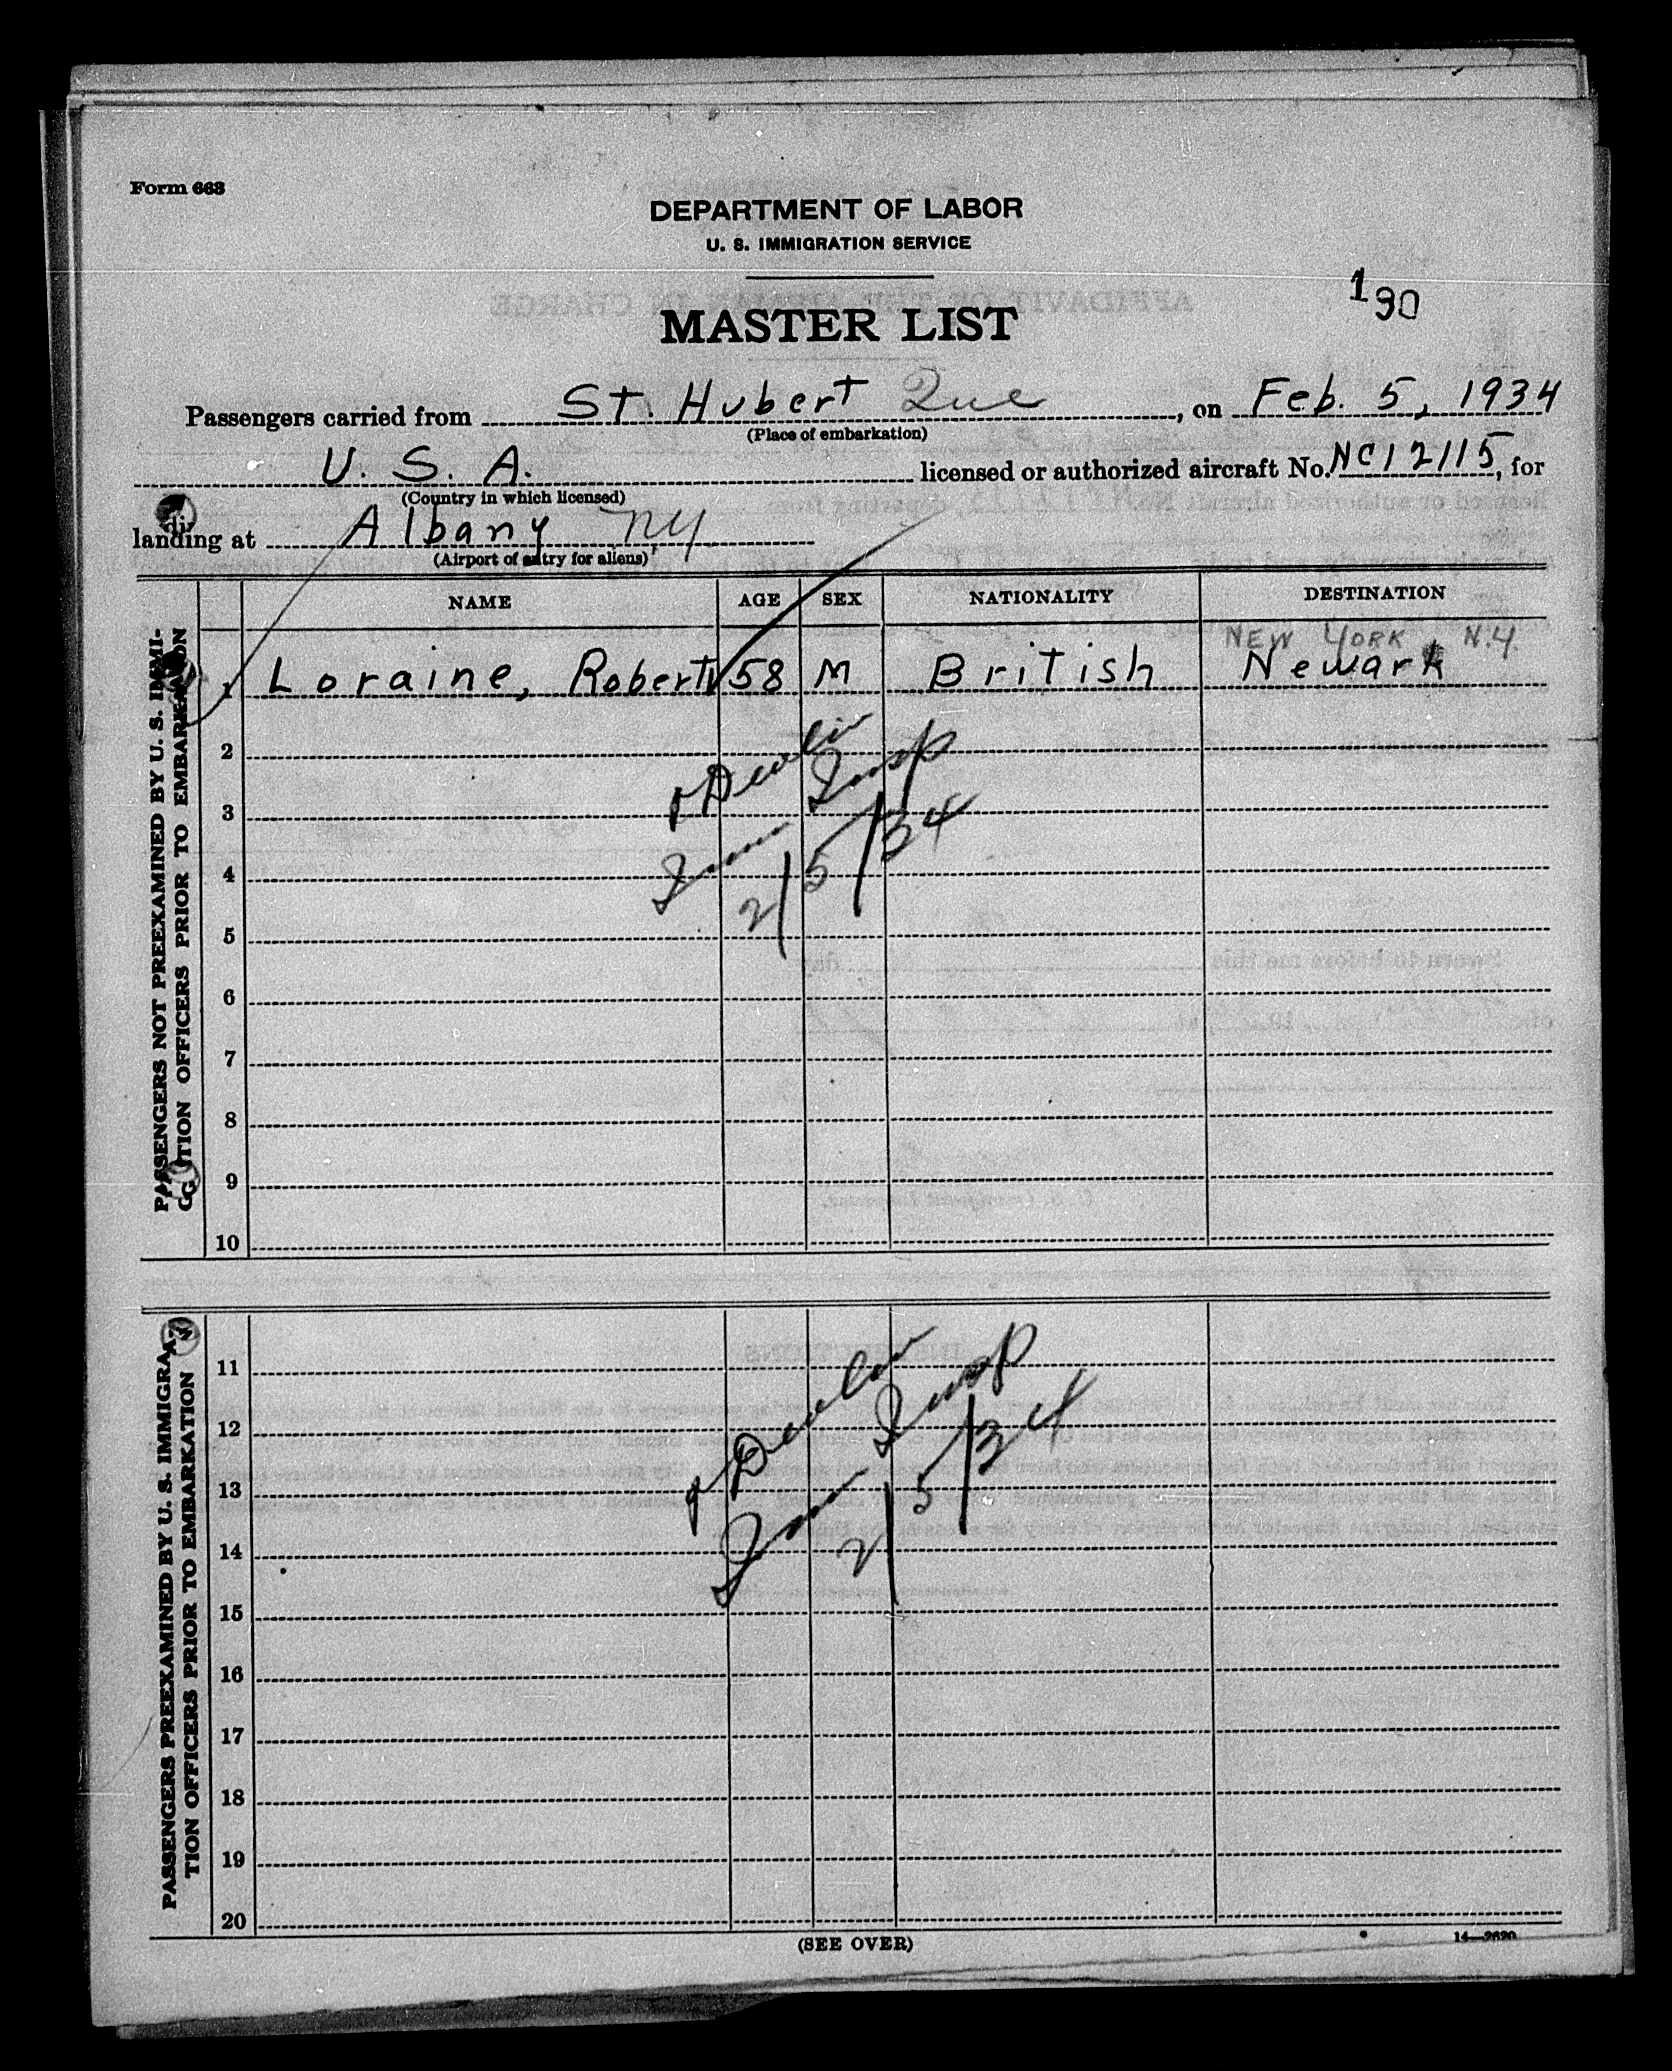 Form 663
DEPARTMENT OF LABOR
U. S. IMMIGRATION SERVICE
190
MASTER LIST
Passengers carried from St. Hubert Que, on Feb. 5, 1934
(Place of embarkation)
U. S. A. licensed or authorized aircraft No. NC12115, for
(Country in which licensed)
landing at Albany NY
(Airport of entry for aliens)
NAME AGE SEX NATIONALITY DESTINATION
NEW YORK N.Y.
1 Loraine, Robert 58 M British Newark
PASSENGERS NOT PREEXAMINED BY U. S. IMMI-
GRATION OFFICERS PRIOR TO EMBARKATION
2
3
4
5
6
7
8
9
10
Devlin
Imm Insp
2/5/34
PASSENGERS PREEXAMINED BY U. S. IMMIGRA-
TION OFFICERS PRIOR TO EMBARKATION
11
12
13
14
15
16
17
18
19
20
Devlin
Imm Insp
2/5/34
(SEE OVER)
14—2620